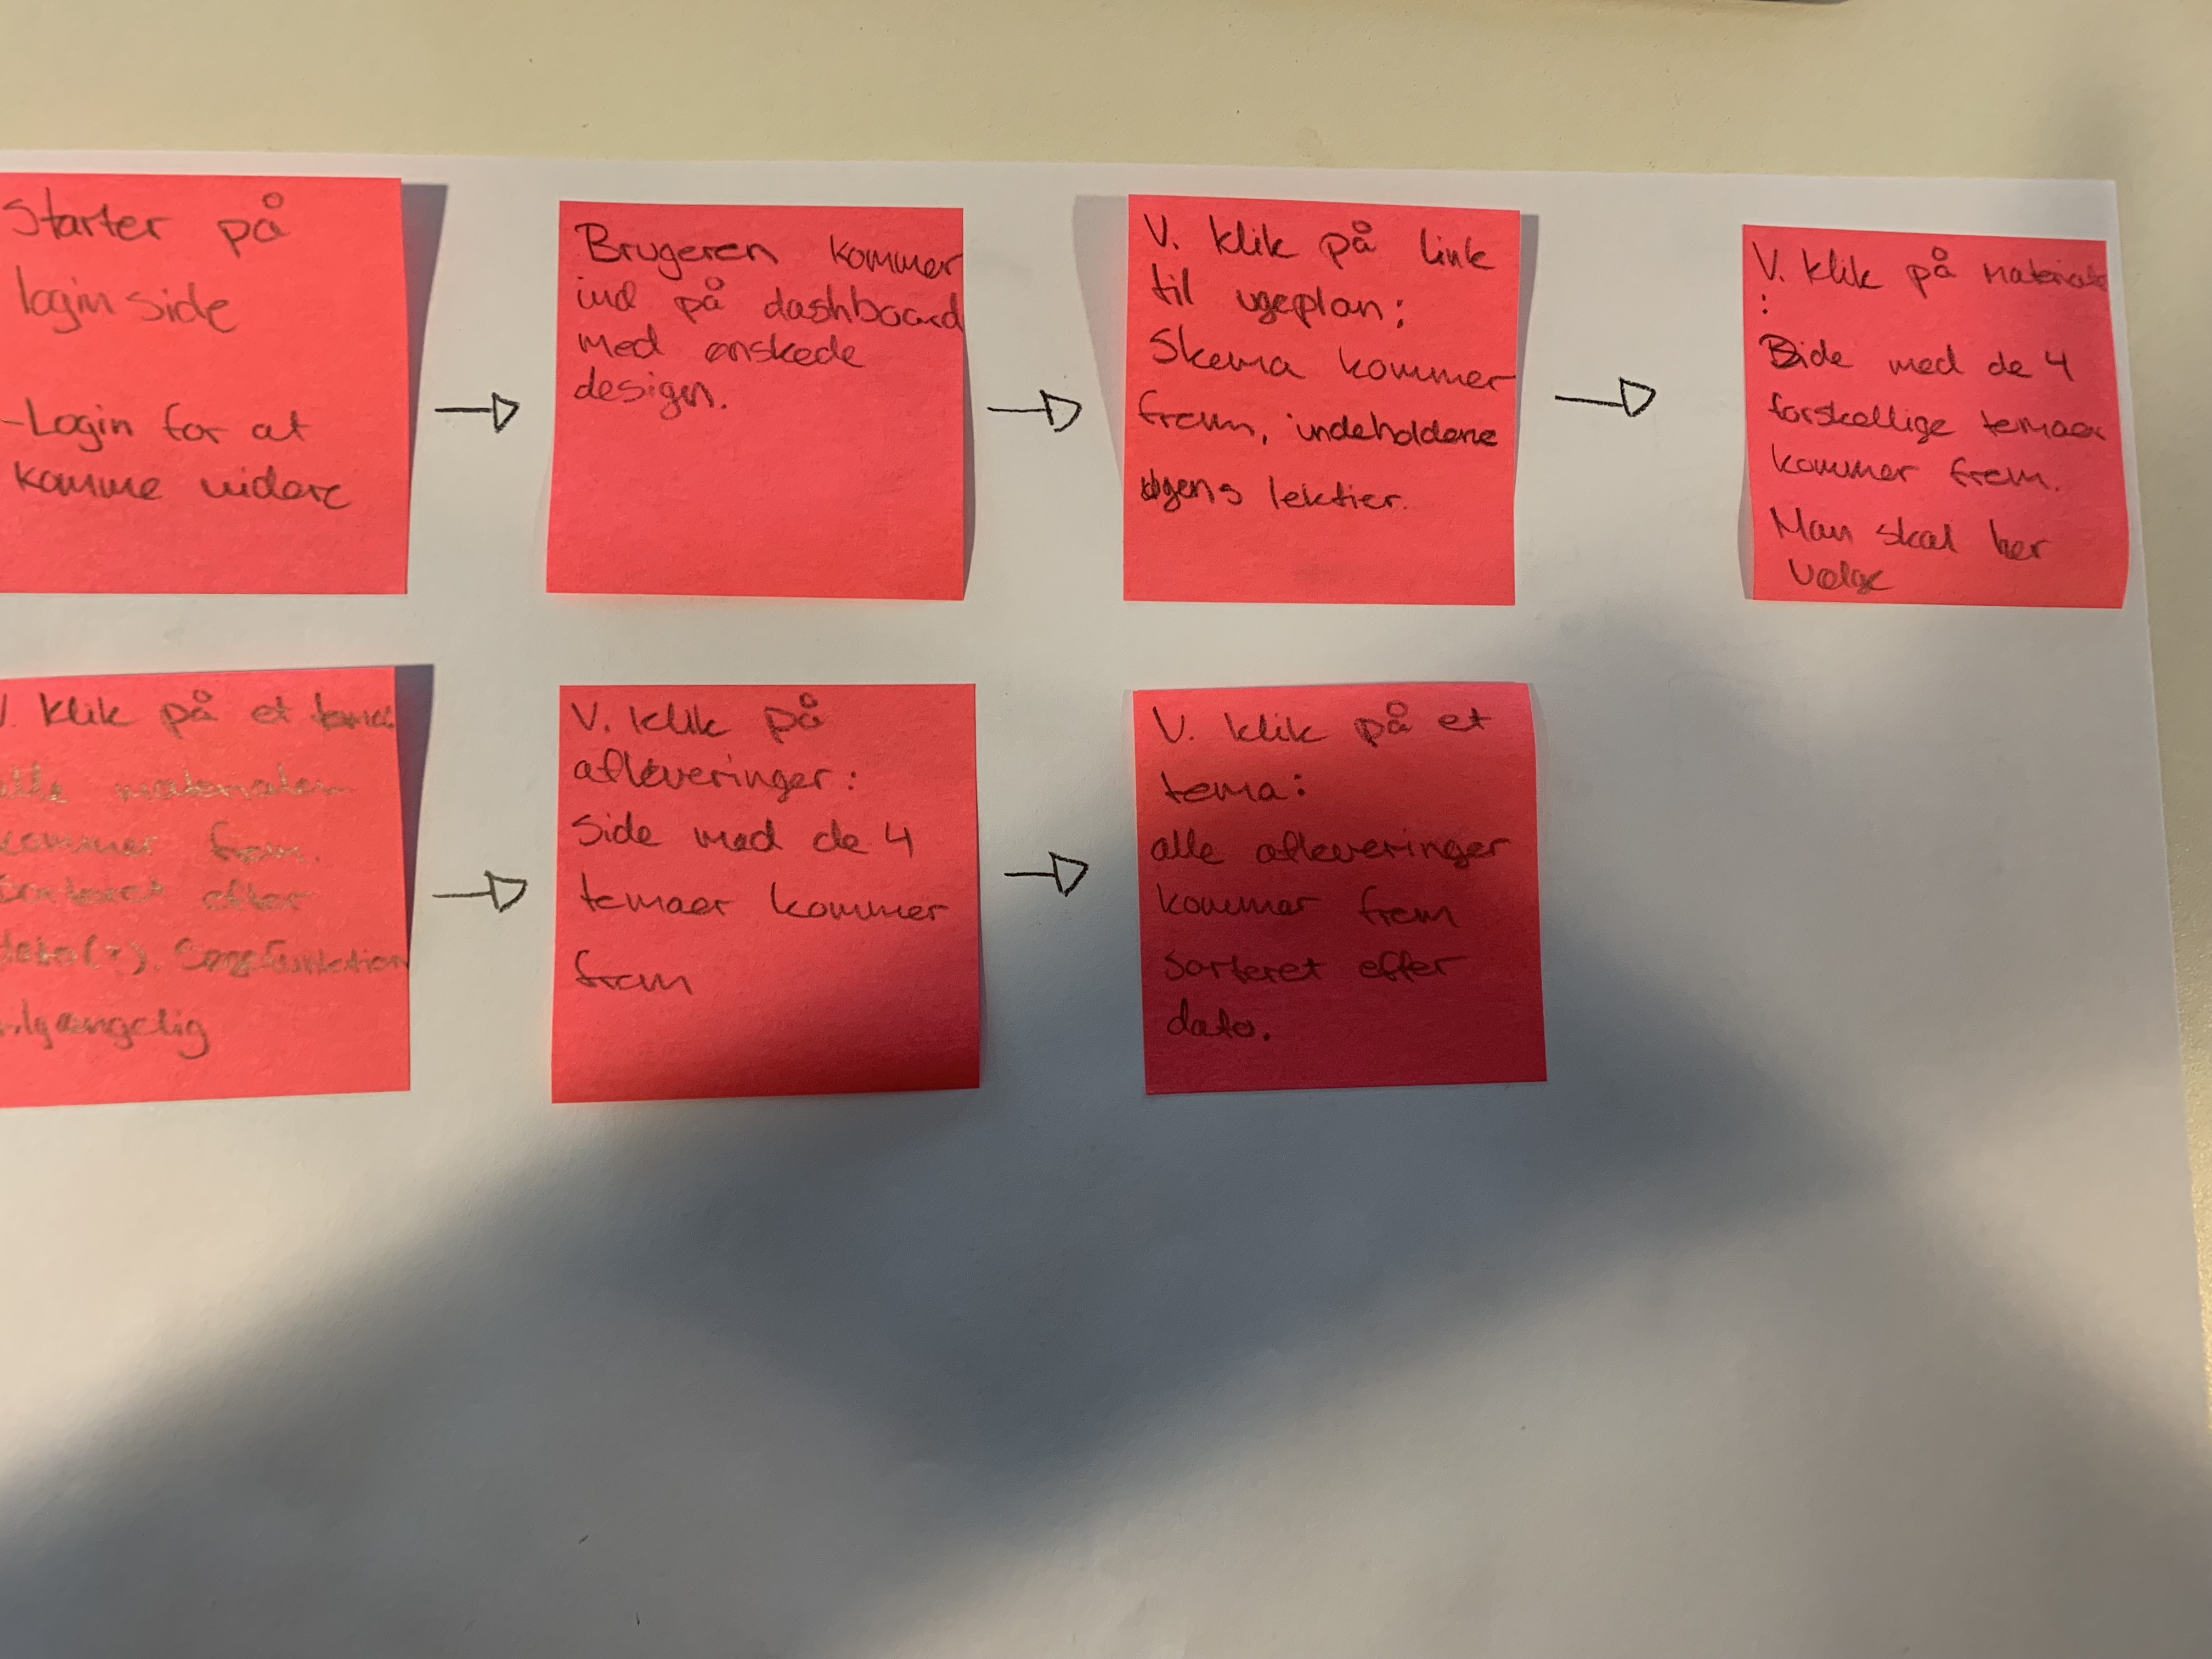 Starter på
login side
-Login for at
komme videre
Brugeren kommer
ind på dashboard
med ønskede
design.
V. klik på link
til ugeplan:
Skema kommer
frem, indeholdene
ugens lektier.
V. klik på materiale
:
Side med de 4
forskellige temaer
kommer frem.
Man skal her
vælge
V. klik på et tema:
alle materialer
kommer frem.
Sorteret efter
dato(?). Søgefunktion
tilgængelig
V. klik på
afleveringer:
side med de 4
temaer kommer
frem
V. klik på et
tema:
alle afleveringer
kommer frem
sorteret efter
dato.